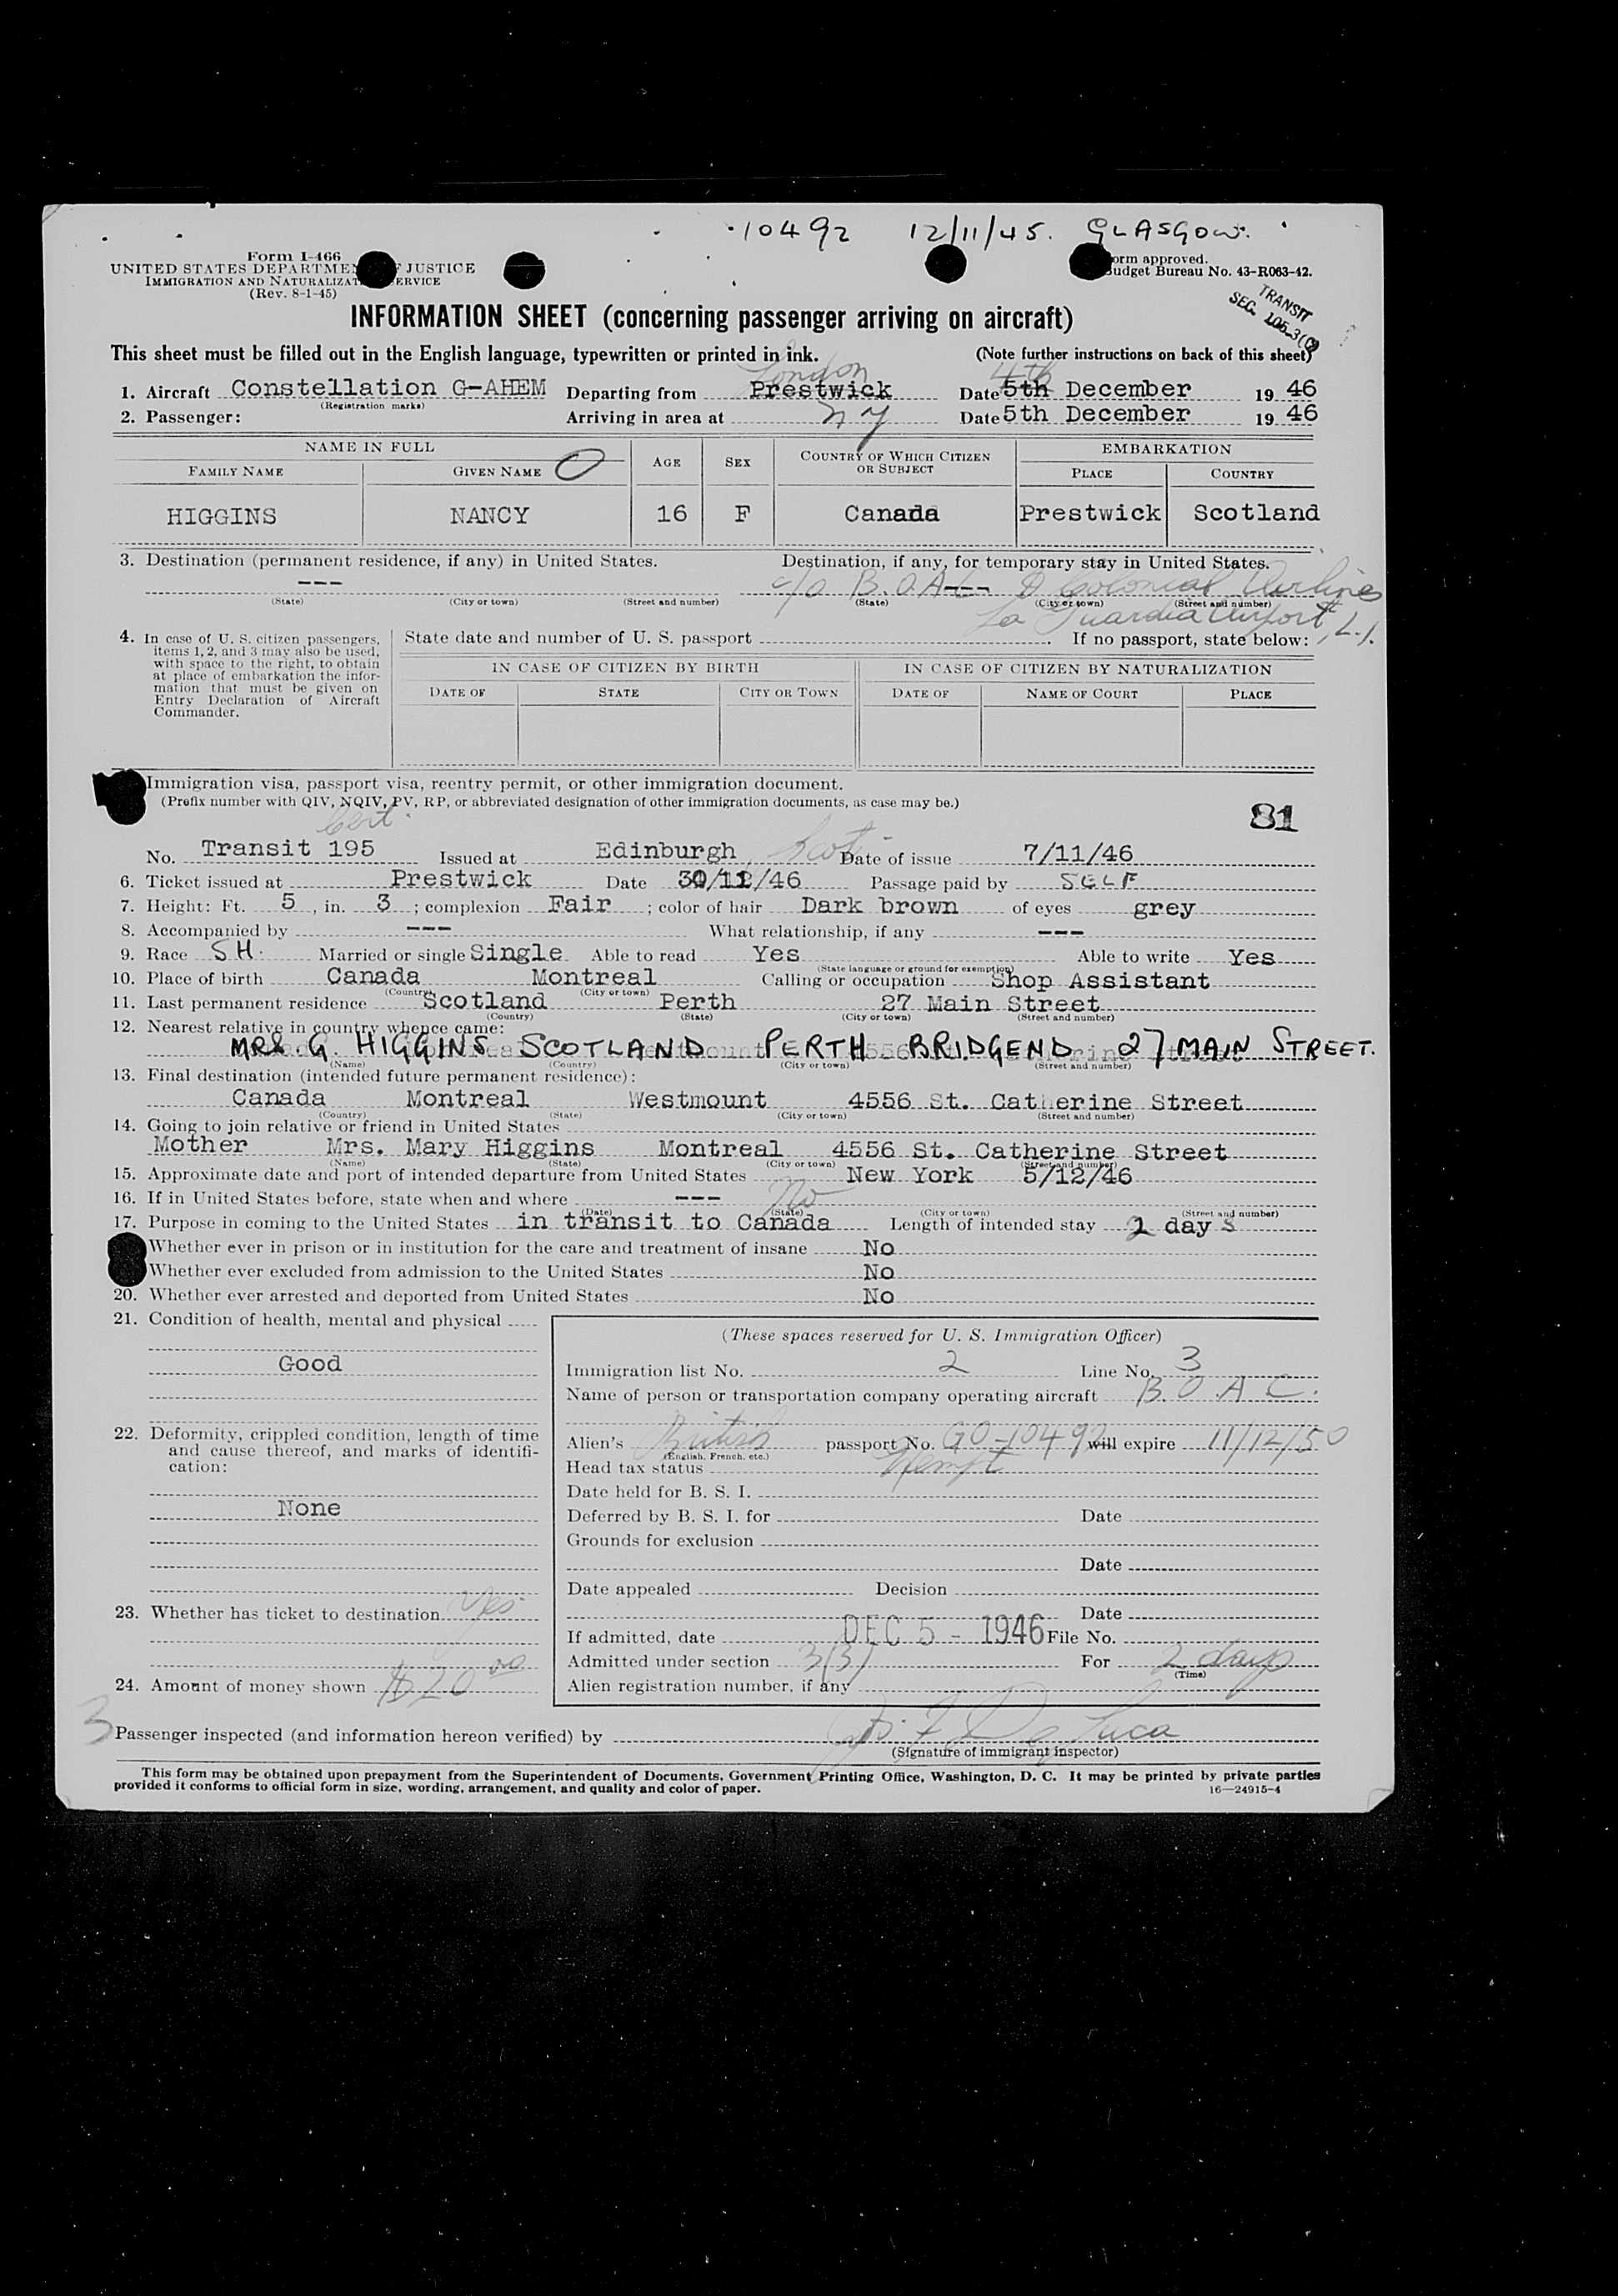 10492 12/11/45. GLASGOW.
Form I-466
UNITED STATES DEPARTMENT OF JUSTICE
IMMIGRATION AND NATURALIZATION SERVICE
(Rev. 8-1-45)
Form approved.
Budget Bureau No. 43-R063-42.
TRANSIT
SEC.
INFORMATION SHEET (concerning passenger arriving on aircraft)
This sheet must be filled out in the English language, typewritten or printed in ink. (Note further instructions on back of this sheet)
London 4th
1. Aircraft Constellation G-AHEM Departing from Prestwick Date 5th December 19 46
(Registration marks)
2. Passenger: Arriving in area at N Y Date 5th December 19 46
NAME IN FULL AGE SEX COUNTRY OF WHICH CITIZEN OR SUBJECT EMBARKATION
FAMILY NAME GIVEN NAME PLACE COUNTRY
HIGGINS NANCY 16 F Canada Prestwick Scotland
3. Destination (permanent residence, if any) in United States. Destination, if any, for temporary stay in United States.
--- c/o B.O.A.C. Colonial Airlines
(State) (City or town) (Street and number) (State) (City or town) (Street and number)
La Guardia Airport, L.I.
4. In case of U. S. citizen passengers, items 1, 2, and 3 may also be used, with space to the right, to obtain at place of embarkation the information that must be given on Entry Declaration of Aircraft Commander.
State date and number of U. S. passport If no passport, state below:
IN CASE OF CITIZEN BY BIRTH IN CASE OF CITIZEN BY NATURALIZATION
DATE OF STATE CITY OR TOWN DATE OF NAME OF COURT PLACE
Immigration visa, passport visa, reentry permit, or other immigration document.
(Prefix number with QIV, NQIV, PV, RP, or abbreviated designation of other immigration documents, as case may be.)
81
Cert.
No. Transit 195 Issued at Edinburgh, Scot- Date of issue 7/11/46
6. Ticket issued at Prestwick Date /46 Passage paid by SELF
7. Height: Ft. 5, in. 3; complexion Fair; color of hair Dark brown of eyes grey
8. Accompanied by --- What relationship, if any ---
9. Race SH. Married or single Single Able to read Yes Able to write Yes
(State language or ground for exemption)
10. Place of birth Canada Montreal Calling or occupation Shop Assistant
(Country) (City or town)
11. Last permanent residence Scotland Perth 27 Main Street
(Country) (State) (City or town) (Street and number)
12. Nearest relative in country whence came:
MRS. G. HIGGINS SCOTLAND PERTH BRIDGEND 27 MAIN STREET.
(Name) (Country) (City or town) (Street and number)
13. Final destination (intended future permanent residence):
Canada Montreal Westmount 4556 St. Catherine Street
(Country) (State) (City or town) (Street and number)
14. Going to join relative or friend in United States
Mother Mrs. Mary Higgins Montreal 4556 St. Catherine Street
(Name) (State) (City or town) (Street and number)
15. Approximate date and port of intended departure from United States New York 5/12/46
16. If in United States before, state when and where --- No
(Date) (State) (City or town) (Street and number)
17. Purpose in coming to the United States in transit to Canada Length of intended stay 2 days
Whether ever in prison or in institution for the care and treatment of insane No
Whether ever excluded from admission to the United States No
20. Whether ever arrested and deported from United States No
21. Condition of health, mental and physical
Good
22. Deformity, crippled condition, length of time and cause thereof, and marks of identification:
None
23. Whether has ticket to destination Yes
24. Amount of money shown $20 00
(These spaces reserved for U. S. Immigration Officer)
Immigration list No. 2 Line No. 3
Name of person or transportation company operating aircraft B.O.A.C.
Alien's British passport No. GO-10492 will expire 11/12/50
(English, French, etc.)
Head tax status Exempt
Date held for B. S. I.
Deferred by B. S. I. for Date
Grounds for exclusion
Date
Date appealed Decision
Date
If admitted, date DEC 5 - 1946 File No.
Admitted under section 3(3) For 2 days
(Time)
Alien registration number, if any
3
Passenger inspected (and information hereon verified) by De Luca
(Signature of immigrant inspector)
This form may be obtained upon prepayment from the Superintendent of Documents, Government Printing Office, Washington, D. C. It may be printed by private parties
provided it conforms to official form in size, wording, arrangement, and quality and color of paper. 16—24915-4